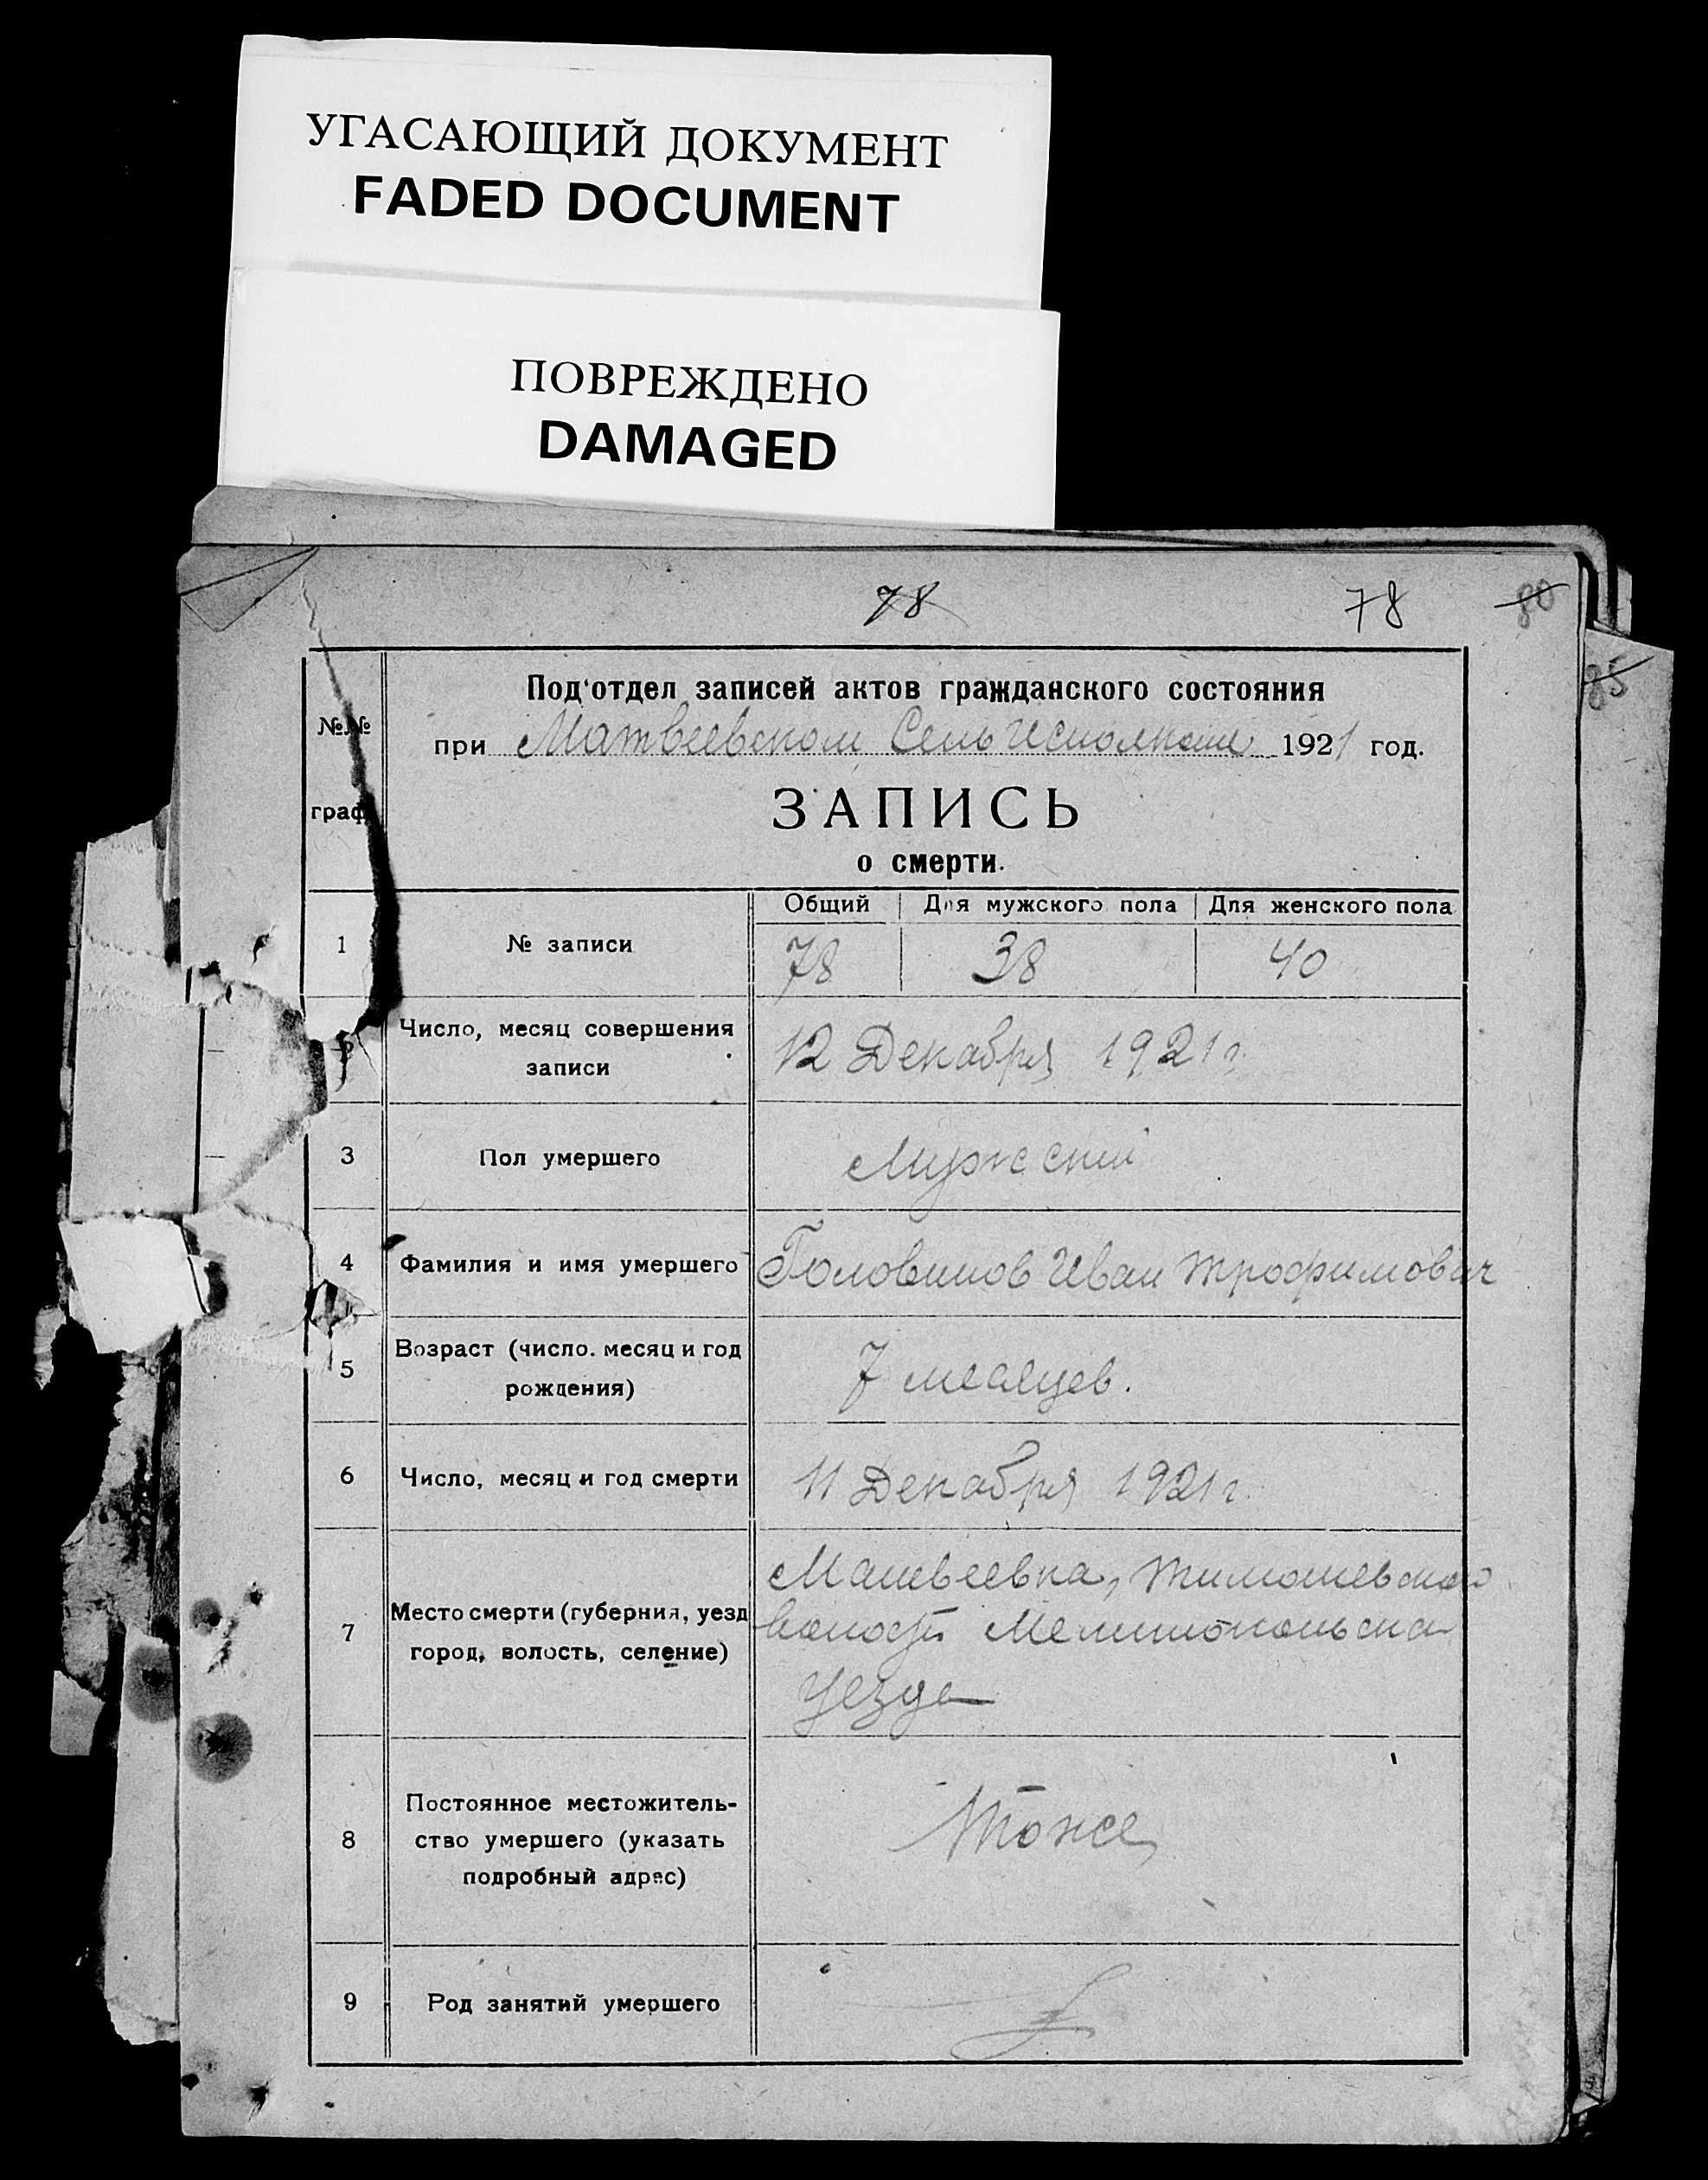 УГАСАЮЩИЙ ДОКУМЕНТ
FADED DOCUMENT
ПОВРЕЖДЕНО
DAMAGED
78 78 80
85
Под'отдел записей актов гражданского состояния
№№
при Матвеевском СельИсполкоме 1921 год.
граф
ЗАПИСЬ
о смерти.
Общий Для мужского пола Для женского пола
1 № записи 78 38 40
Число, месяц совершения
записи
12 Декабря 1921 г.
3 Пол умершего Мужской
4 Фамилия и имя умершего Головинов Иван Трофимович
5 Возраст (число. месяц и год
рождения)
7 месяцев.
6 Число, месяц и год смерти 11 Декабря 1921 г.
7 Место смерти (губерния, уезд
город, волость, селение)
Матвеевка, Тимошевского
волости Мелитопольска
Уезда
8 Постоянное местожитель-
ство умершего (указать
подробный адрес)
Тоже
9 Род занятий умершего